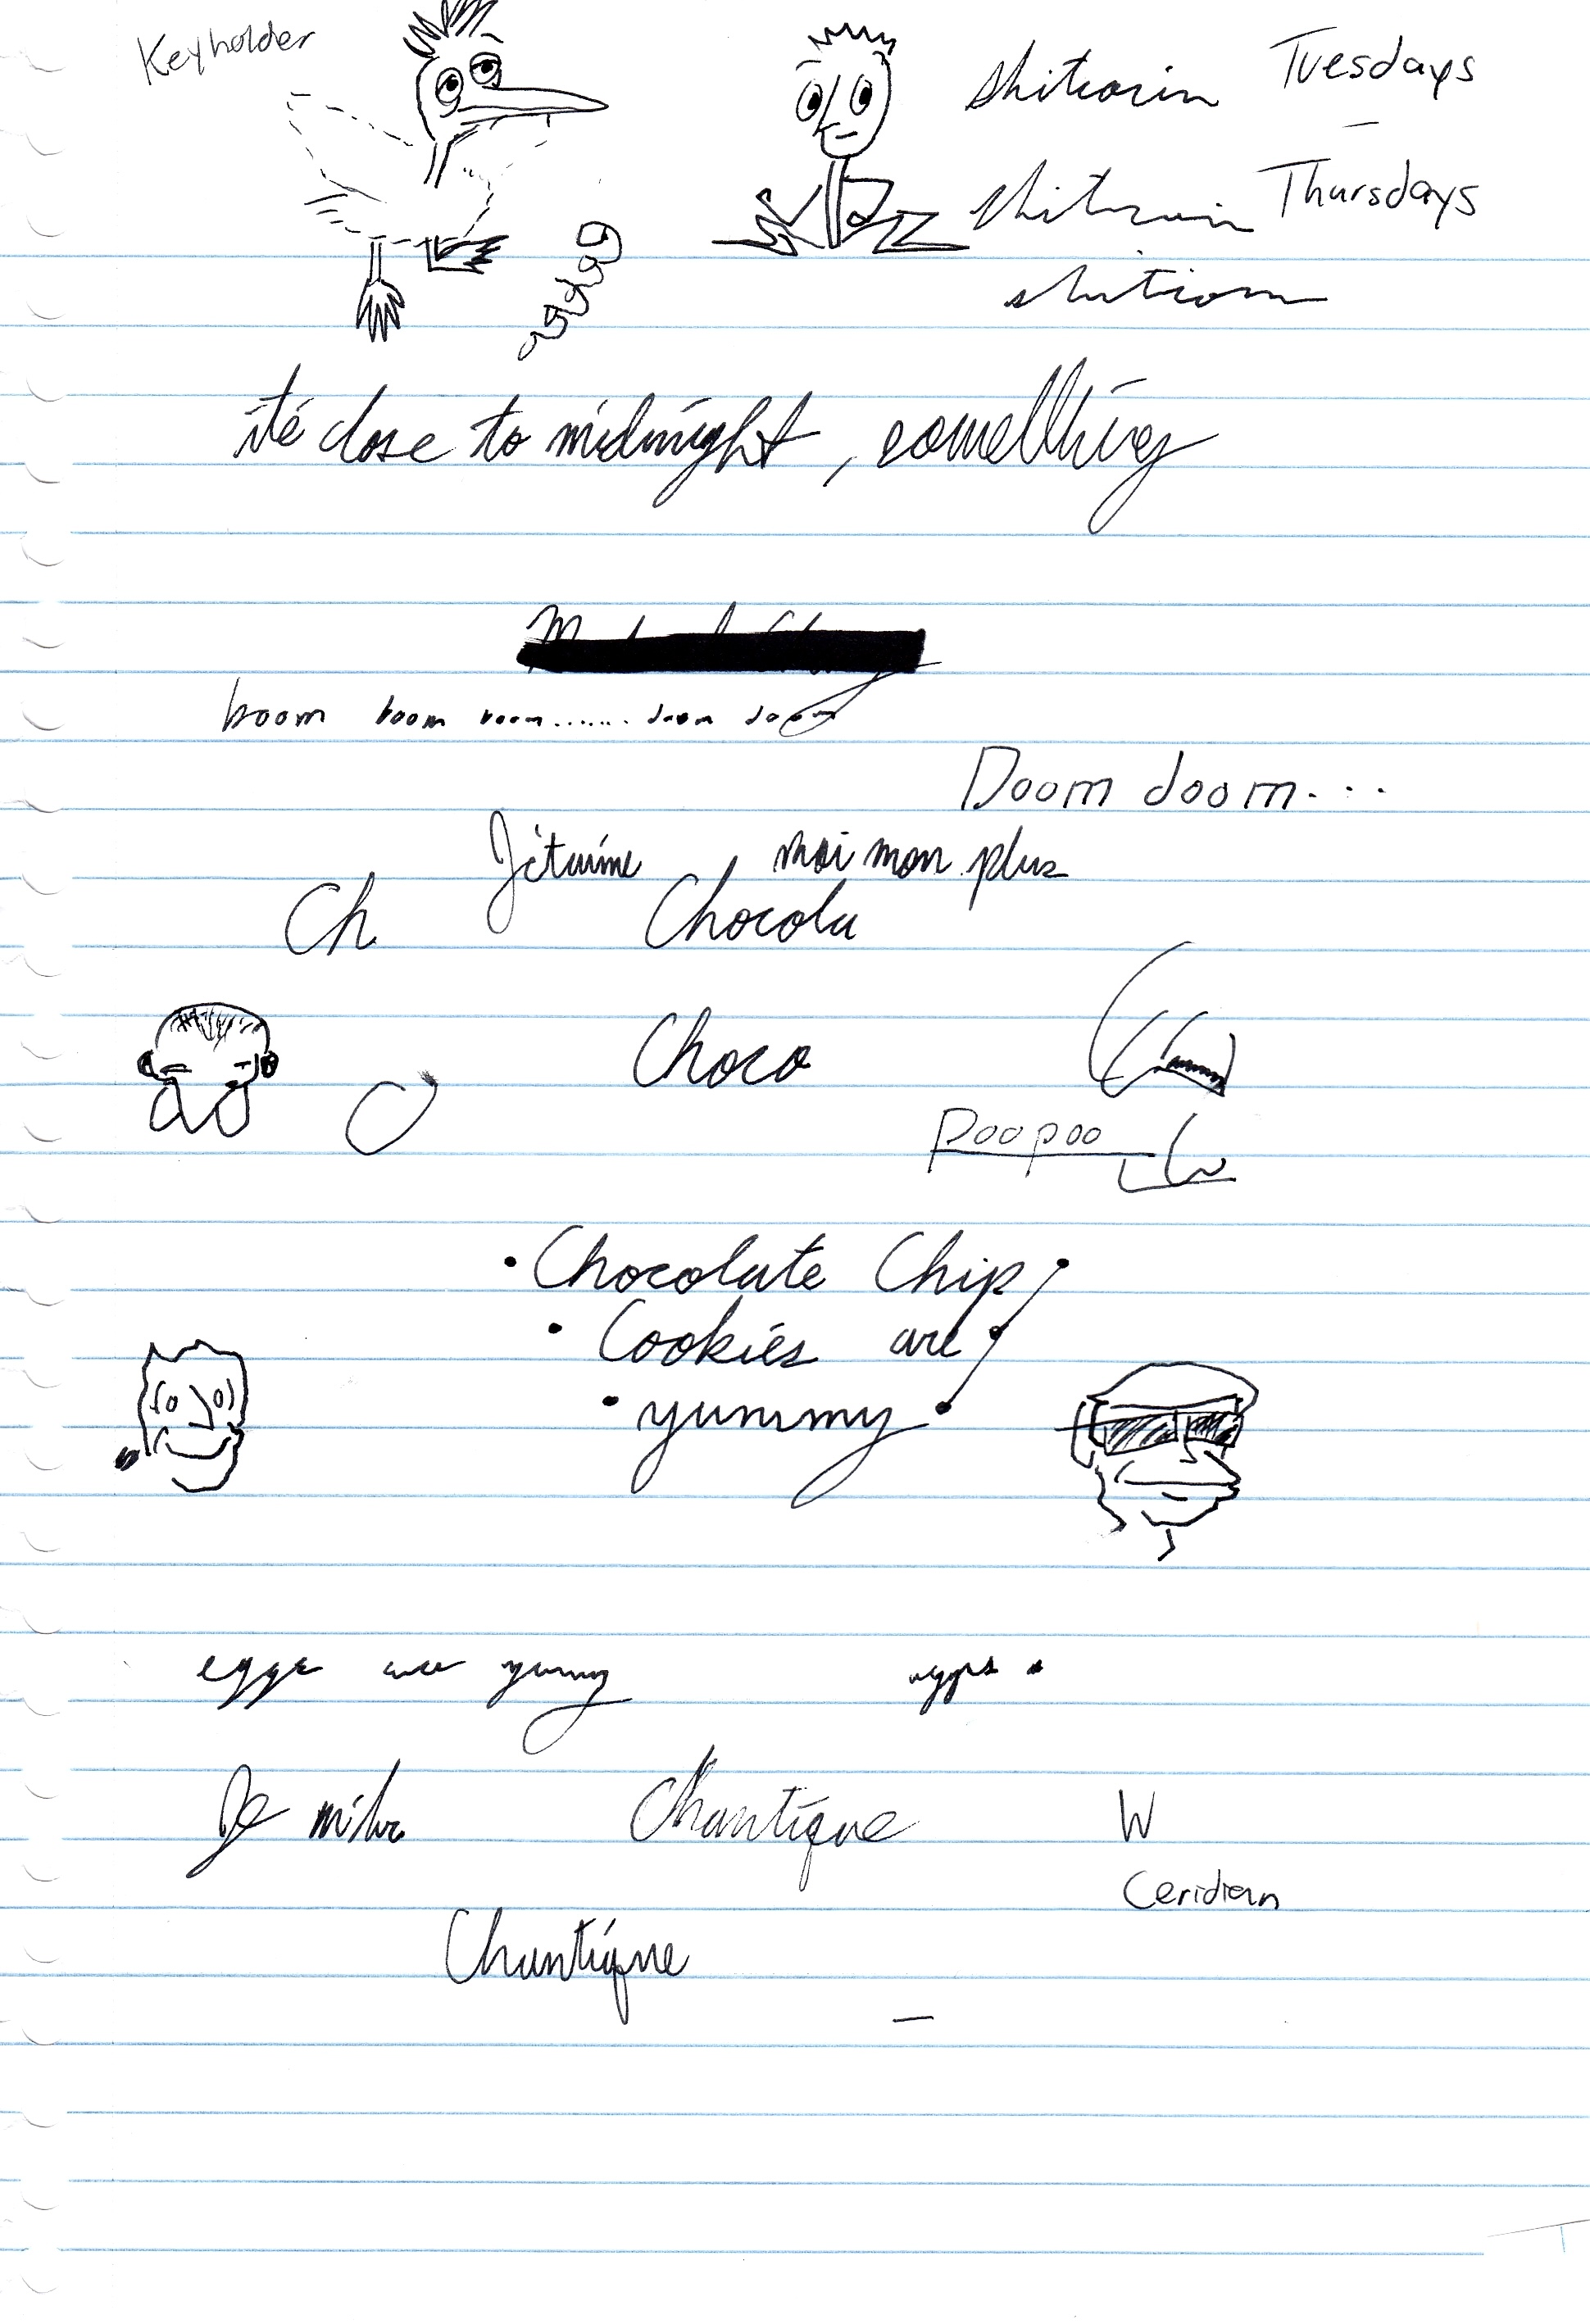 Keyholder
Tuesdays
-
Thursdays
its close to midnight, something
boom boom boom....... doom doom
Doom doom...
Jetaime moi mon plus
Ch Chocola
Choco
Poopoo
• Chocolate Chip •
• Cookies are •
• yummy •
eggs are yummy eggs
Je Chantique W
Ceridian
Chantique